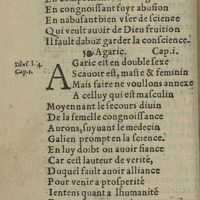 En congnoissant fuyr abusion
En n'abusant bien vser de science
Qui veult auoir de Dieu fruition
Il fault d'abuz garder la conscience.
Agaric. Cap.i.
Dios. l. 4.
Cap.1.
AGaric est en double sexe
Scauoir est, masle & feminin
Mais faire ne voullons annexe
A celluy qui est masculin
Moyennant le secours diuin
De la femelle congnoissance
Aurons, suyuant le medecin
Galien prompt en la science.
En luy doibt on auoir fiance
Car c'est lauteur de verité,
Duquel fault auoir alliance
Pour venir a prosperité
Ientens quant a lhumanité